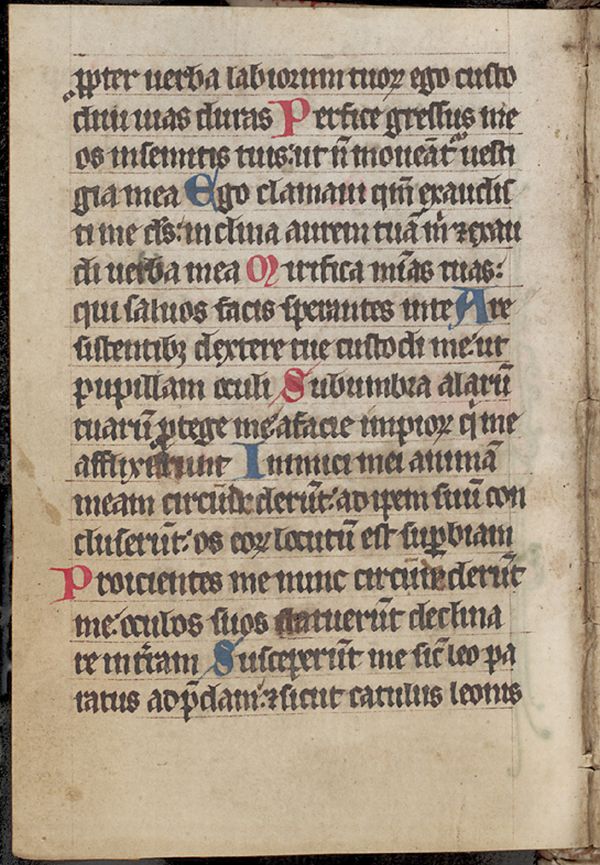 ꝓpter uerba labiorum tuoꝝ ego custo
diui uias duras Perfice gressus me
os insemitis tuis: ut n̄ moueāt᷑ uesti
gia mea Ego clamaui qm̄ exaudis
ti me ds̄: inclina aurem tuā m̄ ⁊ exau
di uerba mea Mirifica mīas tuas:
qui saluos facis sperantes inte A re
sistentibꝫ dextere tue custodi me: ut
pupillam oculi Subumbra alarū
tuarū ꝓtege me: afacie impioꝝ q̄ me
afflixerunt Inimici mei animā
meam circūdederūt: adipem suū con
cluserūt: os eoꝝ locutū est suꝑbiam
Proicientes me nunc circūdederūt
me: oculos suos statuerūt declina
re in tr̄am Susceperūt me sic̄ leo pa
ratus ad p̄dam: ⁊ sicut catulus leonis